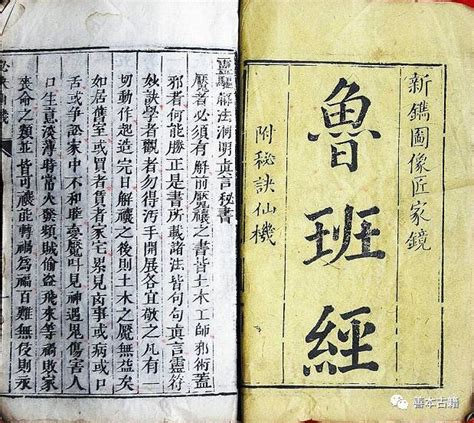 新鐫圖像匠家鏡
魯班經
附秘訣仙機
靈驅解法洞明真言秘書
魘者必須有解前魘禳之書皆土木工師邪術蓋
邪者何能勝正是書所載諸法皆句句真言靈符
妙訣學者觀者勿得汚手開展各宜敬之凡有一
切動作起造完日解禳之後則土木之魘無益矣
如居舊室或買者賃者家宅累見凶事或病或口
舌或爭訟家中不和睡魘呌見神遇鬼傷害人
口生意淡薄時當火發頻賊偷盜飛來等禍敗家
喪命之類並皆可禳能轉禍為福百難無侵則永
訣仙機
善本古籍